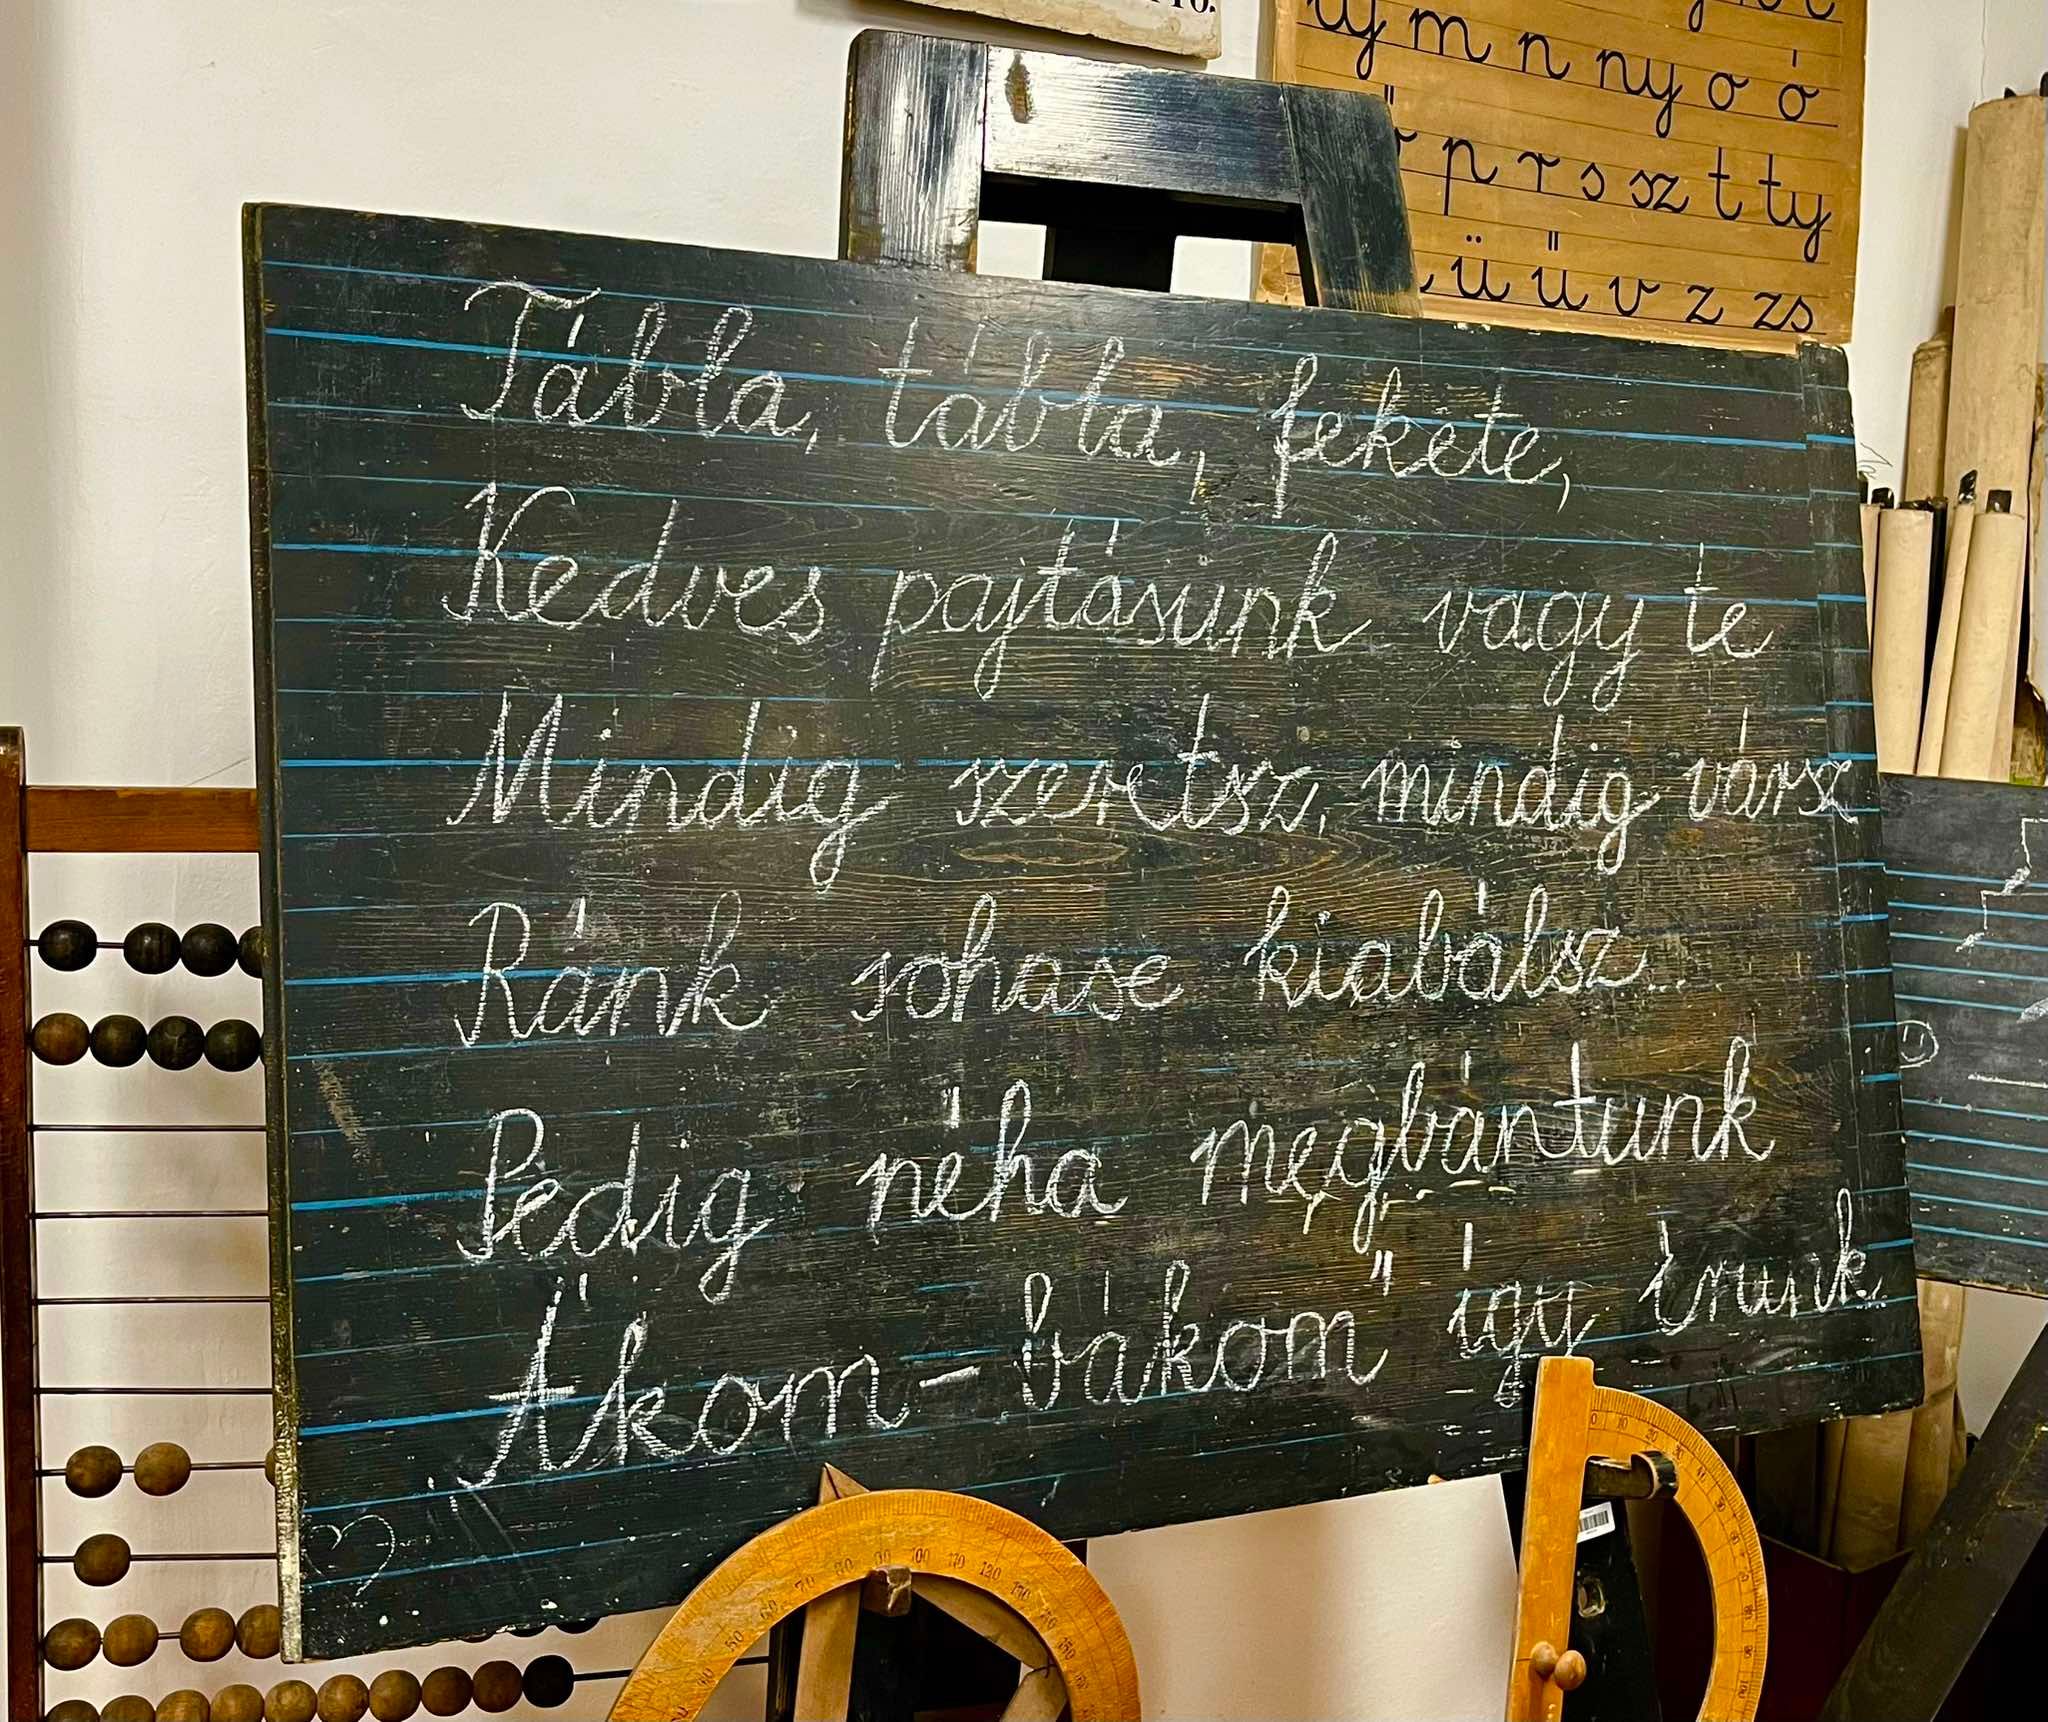 ly m n ny o ó
p r s sz t ty
ü ű v z zs
Tábla, tábla, fekete,
Kedves pajtásunk vagy te
Mindig szeretsz, mindig vársz
Ránk sohase kiabálsz...
Pedig néha megbántunk
"Ákom-bákom" így írunk.
0 10 20 30 40 50
50 60 70 80 90 100 110 120 130